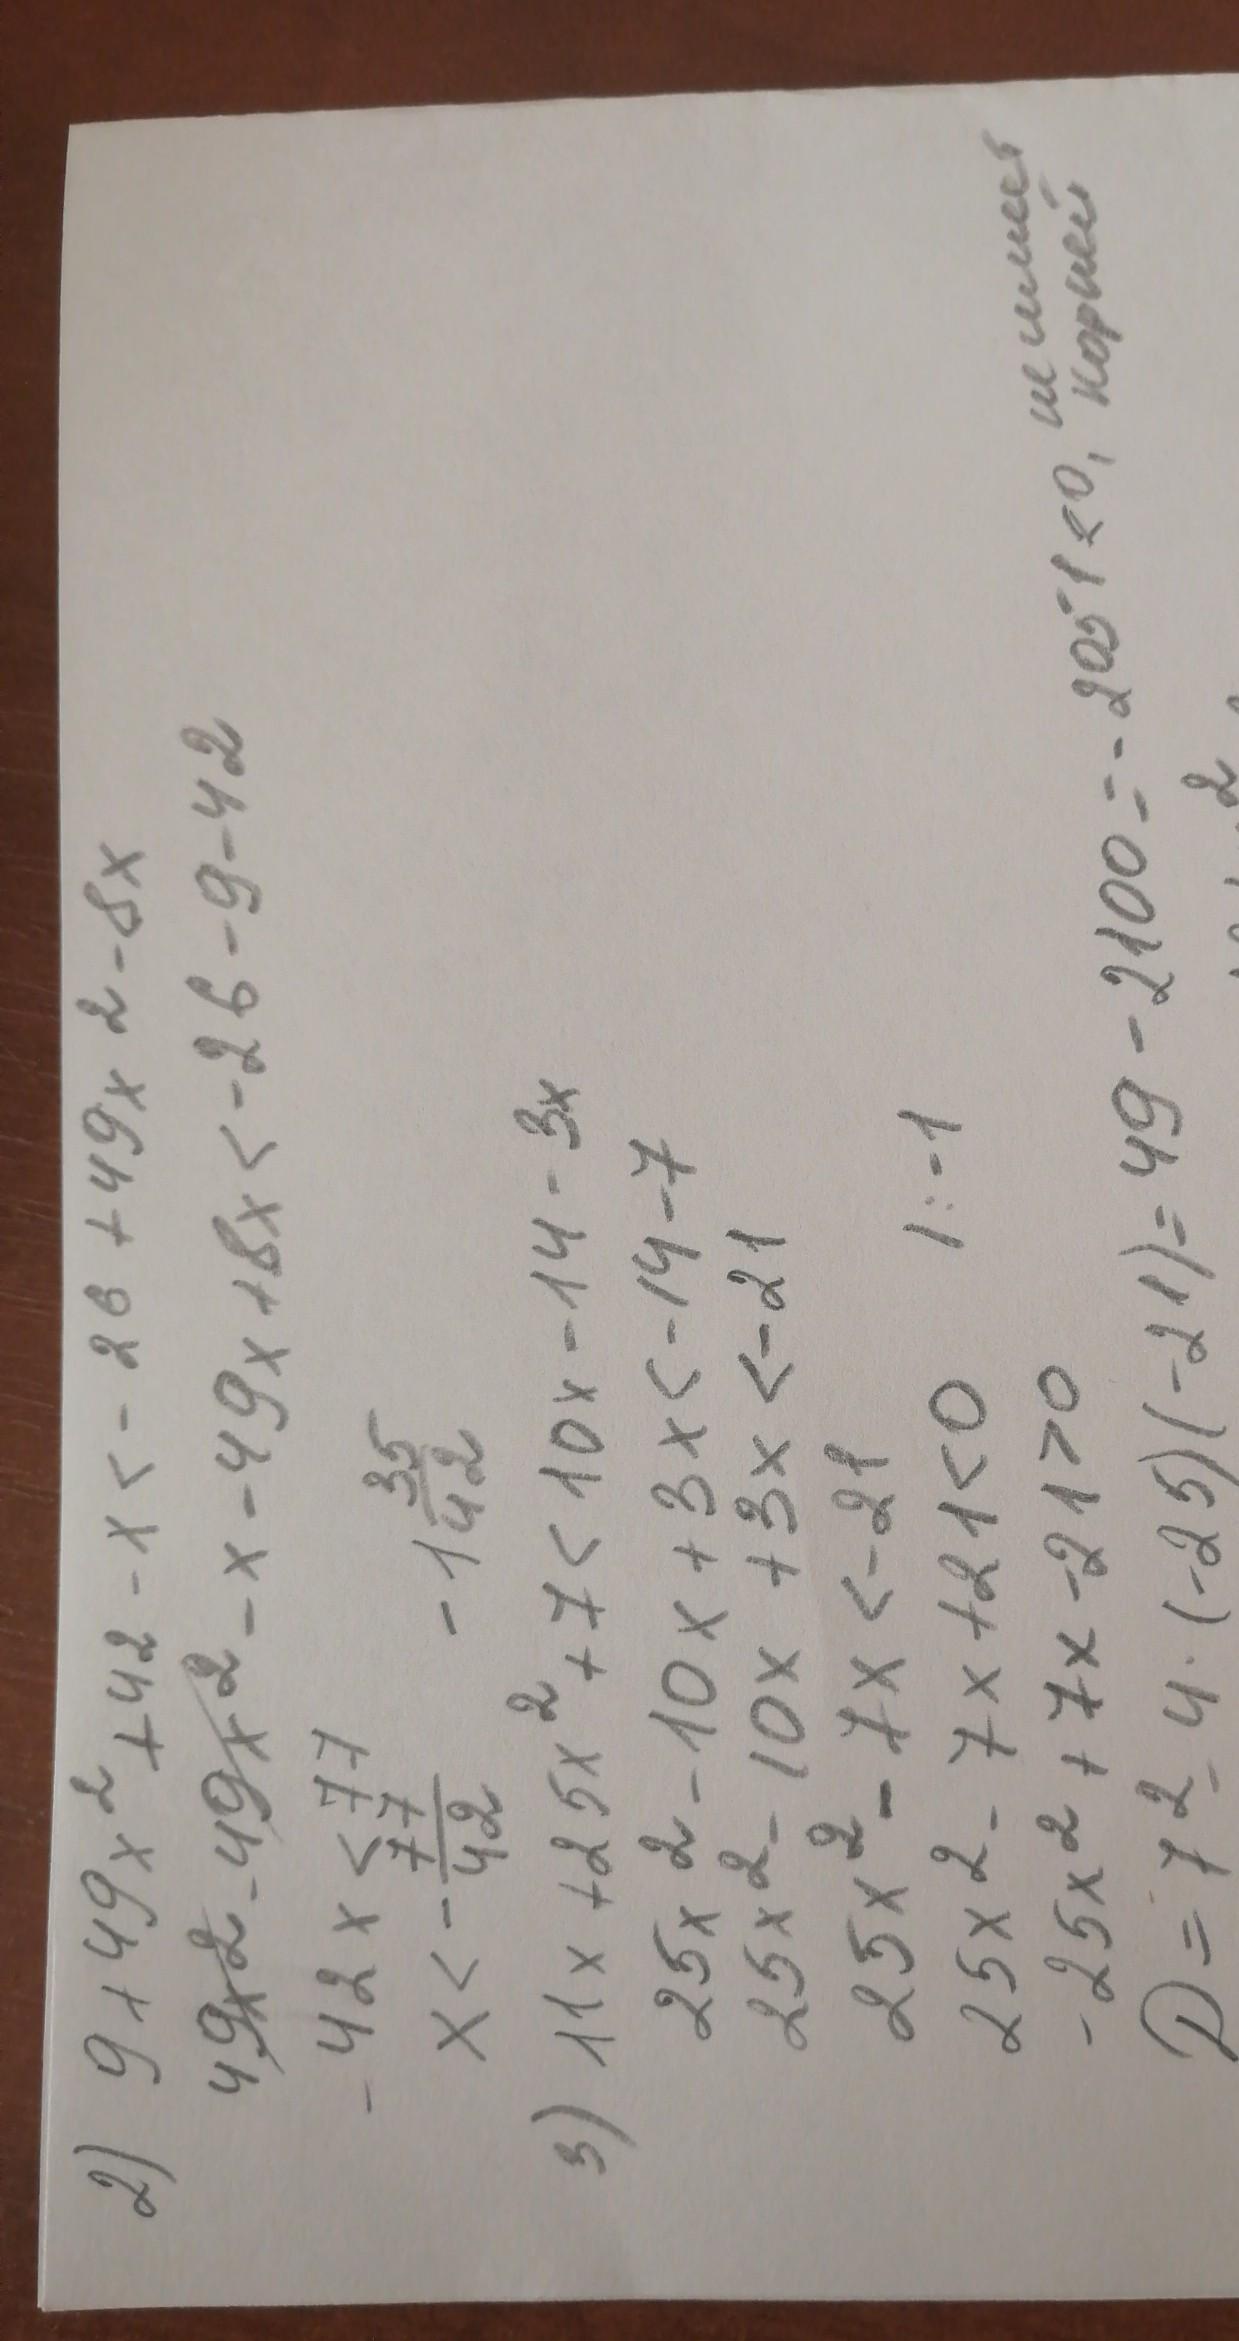 2) 9 + 49x² + 42 - x < - 26 + 49x2 - 8x
49x2 - 49x² - x - 49x + 8x < - 26 - 9 - 42
- 42x < 77
x < - 77/42 - 1 35/42
3) 11x + 25x² + 7 < 10x - 14 - 3x
25x2 - 10x + 3x < - 14 - 7
25x2 - 10x + 3x < - 21
25x² - 7x < - 21
25x2 - 7x + 21 < 0 | : - 1
- 25x2 + 7x - 21 > 0
D = 7² - 4 · (- 25)(- 21) = 49 - 2100 = - 2051 < 0, не имеет
корней